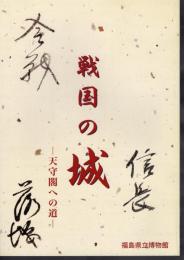 戦国の城
―天守閣への道―
合戦
信長
落城
福島県立博物館